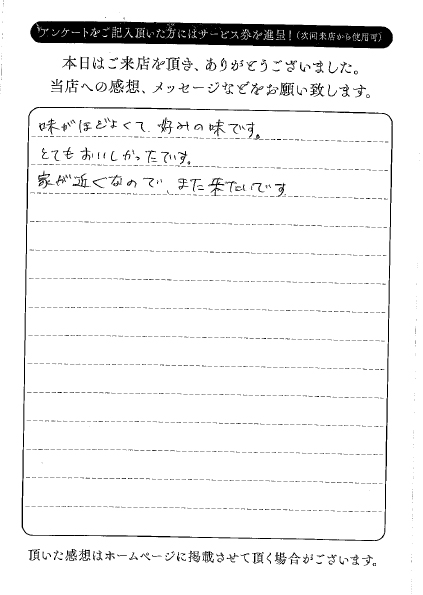 アンケートをご記入頂いた方にはサービス券を進呈！(次回来店から使用可)
本日はご来店を頂き、ありがとうございました。
当店への感想、メッセージなどをお願い致します。
味がほどよくて、好みの味です。
とてもおいしかったです。
家が近くなので、また来たいです
頂いた感想はホームページに掲載させて頂く場合がございます。